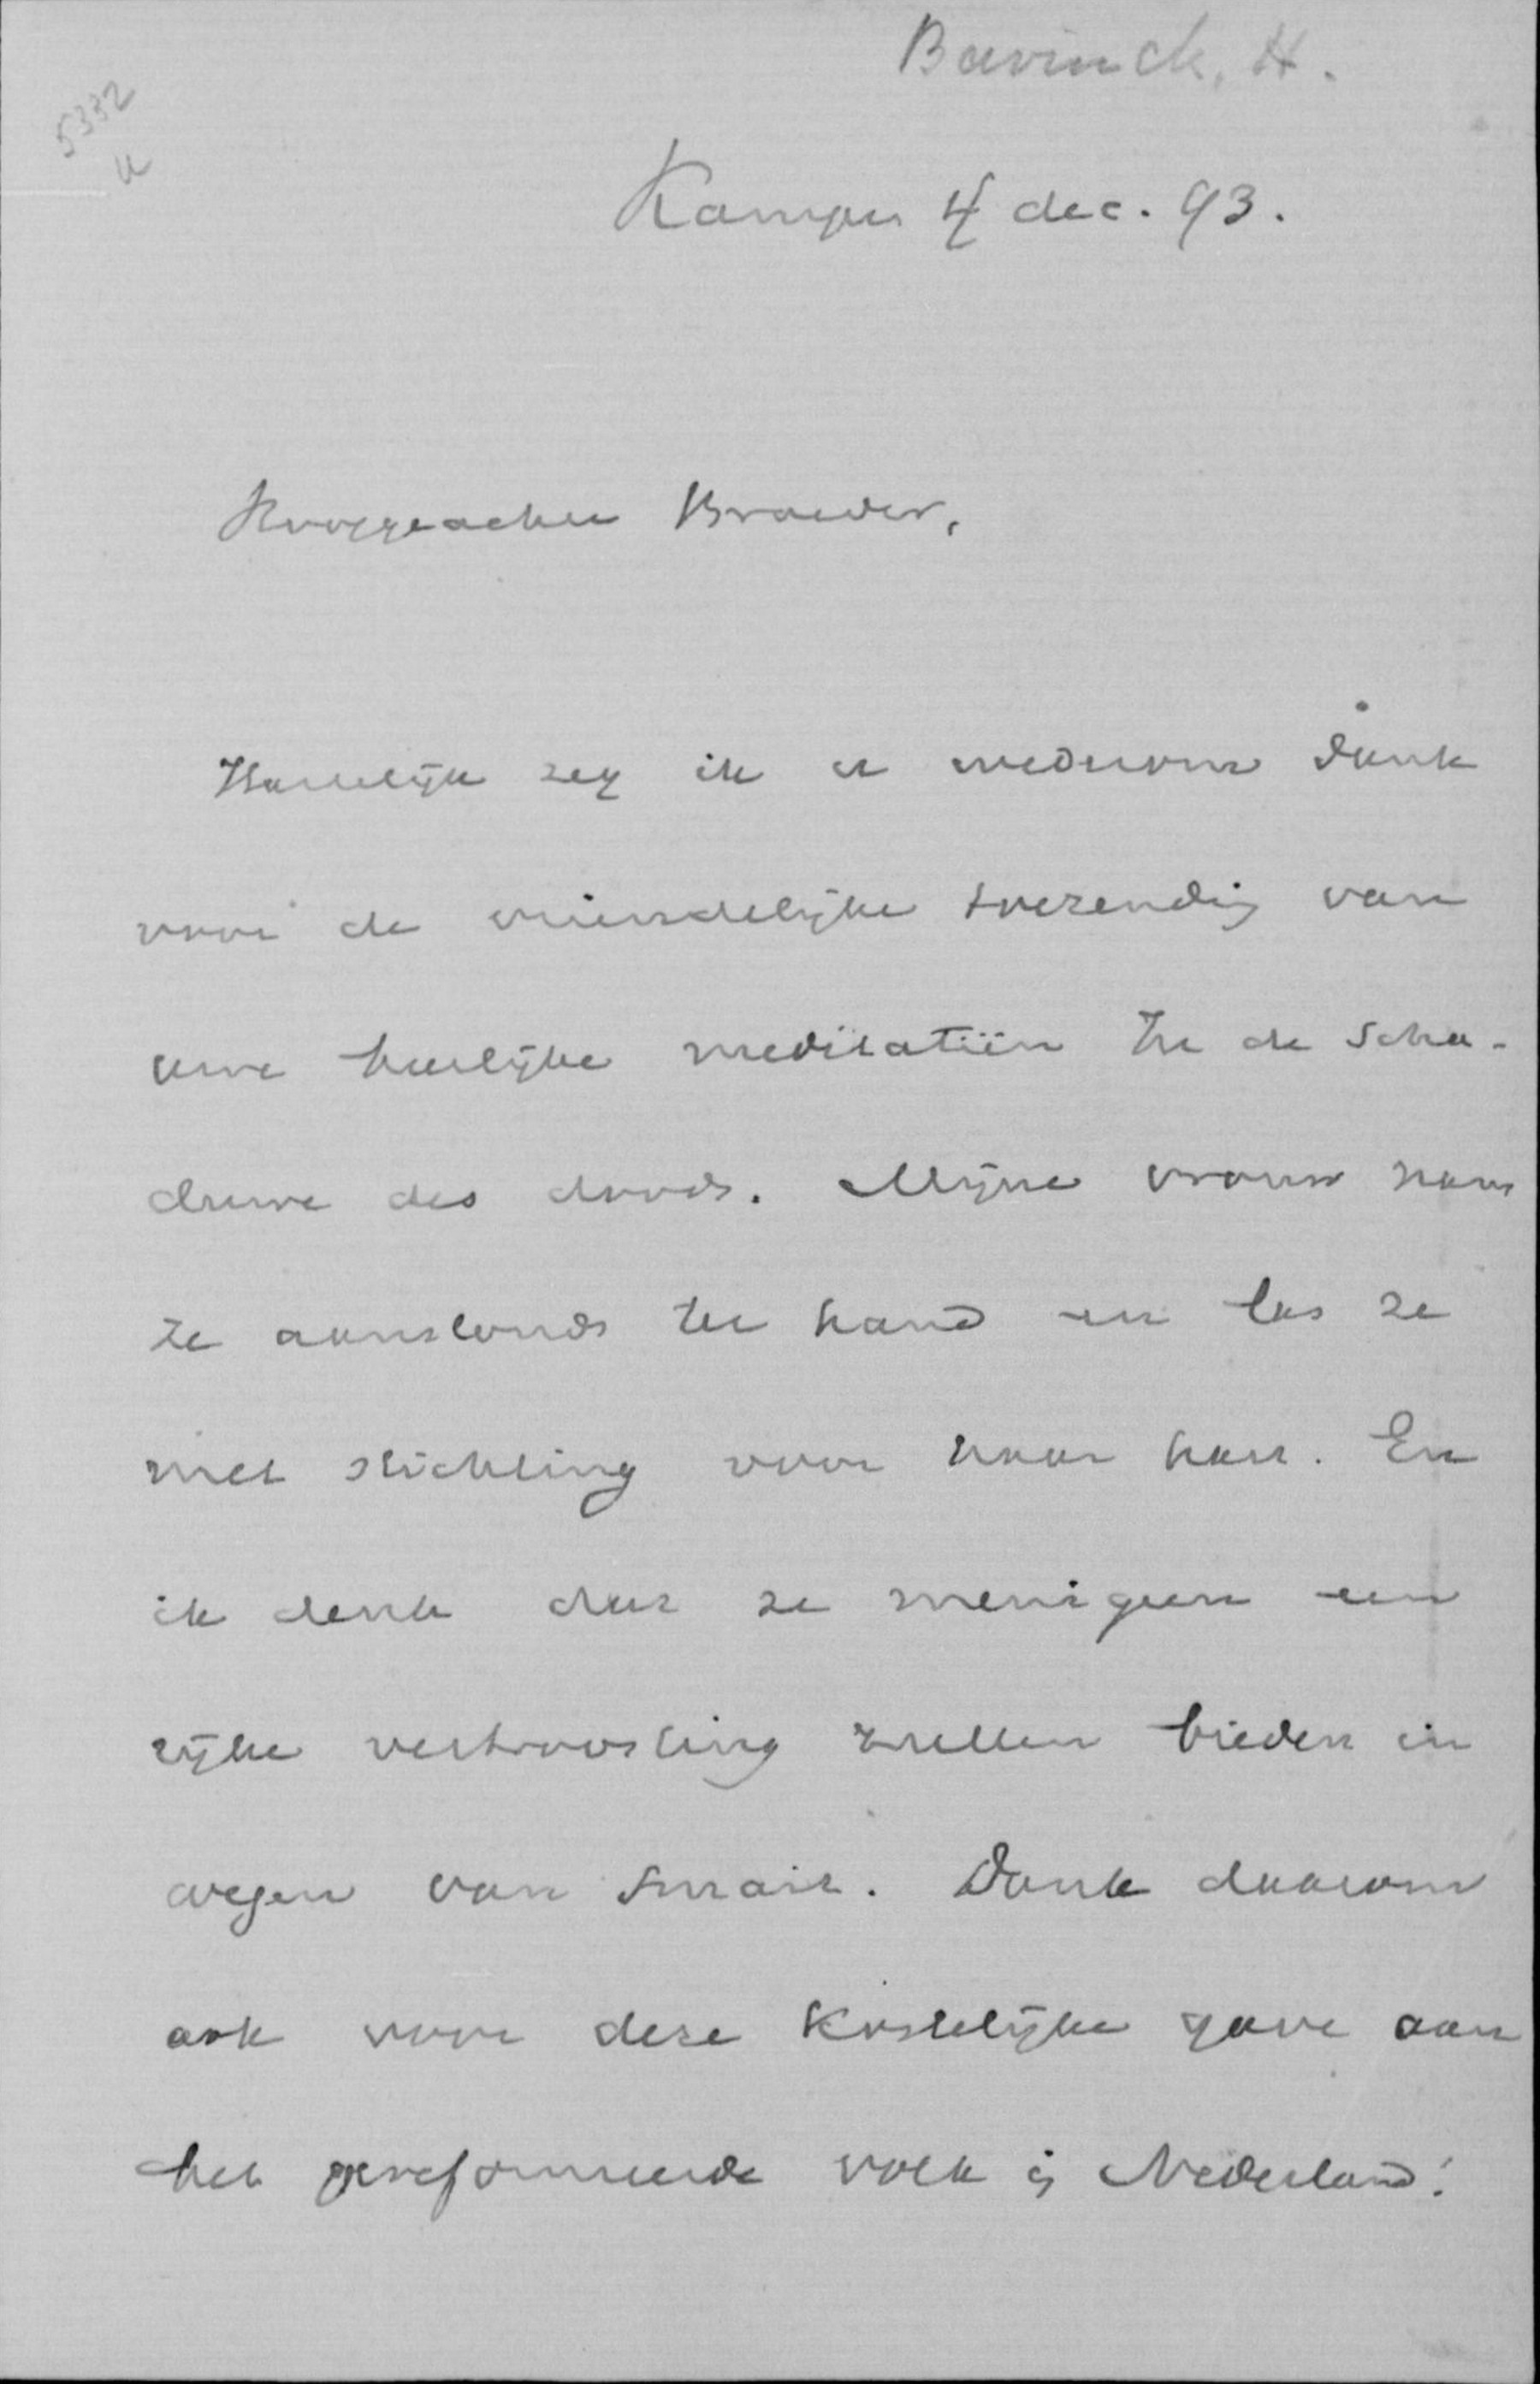 Bavinck, H.
5332
Kampen 4 dec. 93.
Hooggeachte Broeder,
Hartelijk zeg ik u wederom dank
voor de vriendelijke toezending van
uwe heerlijke meditatiën In de scha-
duwe des doods. Mijne vrouw nam
ze aanstonds ter hand en las ze
met stichting voor haar hart. En
ik denk dat ze menigeen een
rijke vertroosting zullen bieden in
wegen van smart. Dank daarom
ook voor deze kostelijke gave aan
het gereformeerde volk in Nederland!